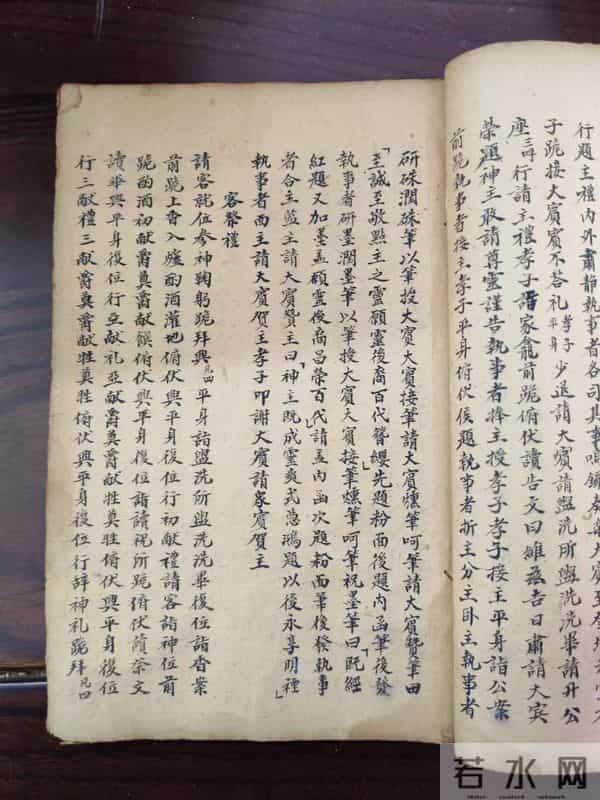 行題主禮內外肅靜執事者各司其事鳴鑼
子跪接大賓賓不答礼孝子平身少退請大賓請盥洗所盥洗洗畢請升公
座三叩行請主禮孝子詣家龕前跪俯伏讀告文曰維茲吉日肅請大賓
榮題神主敢請尊靈謹告執事者捧主授孝子孝子接主平身詣公案
前跪執事者接主孝子平身俯伏俟題執事者折主分主臥主執事者
研硃潤硃筆以筆授大賓大賓接筆請大賓燻筆呵筆請大賓贊筆曰
至誠至敬點主之靈願靈後裔百代簪纓先題粉面後題內函筆後發
執事者研墨潤墨筆以筆授大賓大賓接筆燻筆呵筆祝墨筆曰既經
紅題又加墨蓋願靈後裔昌榮百代請蓋內函次題粉面筆後發執事
者合主藍主請大賓贊主曰神主既成靈爽式憑鴻題以後永享明禋
執事者而主請大賓賀主孝子叩謝大賓請家賓賀主
客幣禮
請客就位參神鞠躬跪拜興凡四平身詣盥洗所盥洗洗畢復位詣香案
前跪上香入爐酌酒灌地俯伏興平身復位行初献禮請客詣神位前
跪酌酒初献爵奠爵献饌俯伏興平身復位詣讀祝所跪俯伏讀祭文
讀畢興平身復位行亞献礼亞献爵奠爵献牲奠牲俯伏興平身復位
行三献禮三献爵奠爵献牲奠牲俯伏興平身復位行辞神礼跪拜凡四
若水网